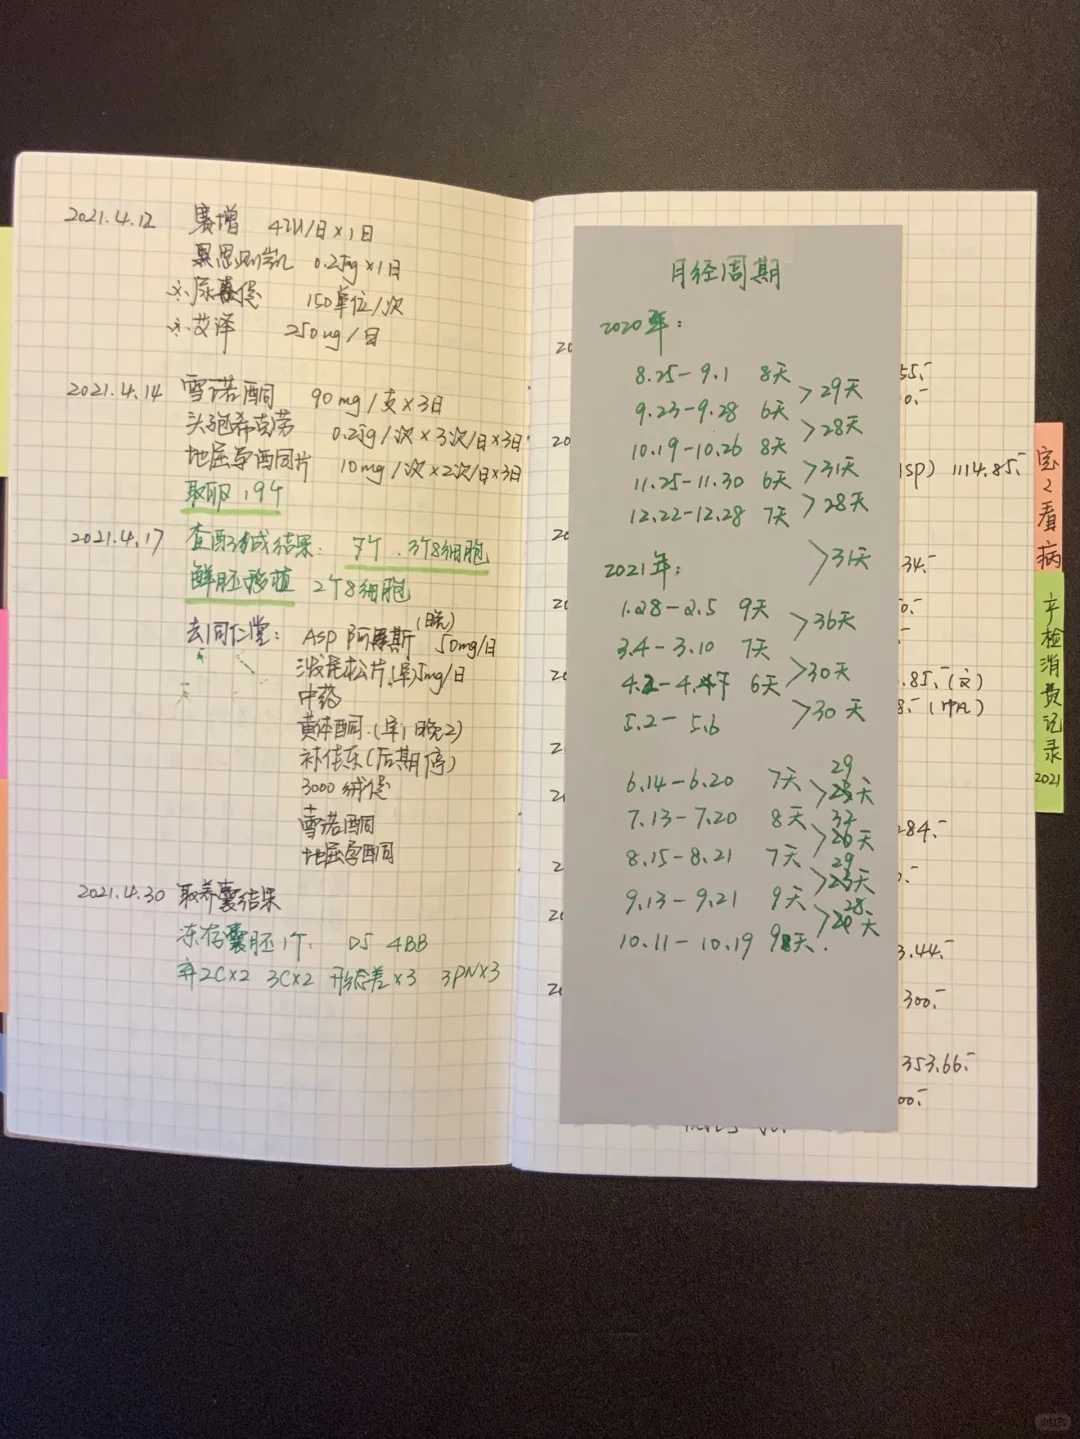 2021.4.12 赛增 4IU/日×1日
思则凯 0.25mg×1日
※ 尿 150单位/次
※ 艾泽 250ug/日
2021.4.14 雪诺酮 90mg/支×3日
头孢希克劳 0.25g/次×3次/日×3日
地屈孕酮片 10mg/次×2次/日×3日
取卵 19个
2021.4.17 查配成结果: 7个.3个8细胞
鲜胚移植 2个8细胞
去同仁堂: ASP 阿司(晚) 50mg/日
泼尼松片(早)5mg/日
中药
黄体酮.(早1晚2)
补佳乐(后期停)
3000绒促
雪诺酮
地屈孕酮
2021.4.30 取养囊结果
冻存囊胚1个. D5 4BB
弃2C×2 3C×2 形态差×3 3PN×3
月经周期
2020年:
8.25-9.1 8天
>29天
9.23-9.28 6天
>28天
10.19-10.26 8天
>31天
11.25-11.30 6天
>28天
12.22-12.28 7天
>31天
2021年:
1.28-2.5 9天
>36天
3.4-3.10 7天
>30天
4.2-4.7 6天
>30天
5.2-5.6
6.14-6.20 7天
29
天
7.13-7.20 8天
32
天
8.15-8.21 7天
29
天
9.13-9.21 9天
28
天
10.11-10.19 9天.
55.-
0.-
SP) 1114.85.-
34.-
0.-
.85.-(文)
8.-
284.-
3.44.-
300.-
353.66.-
00.-
宝2看病
产检消费记录2021
小红书